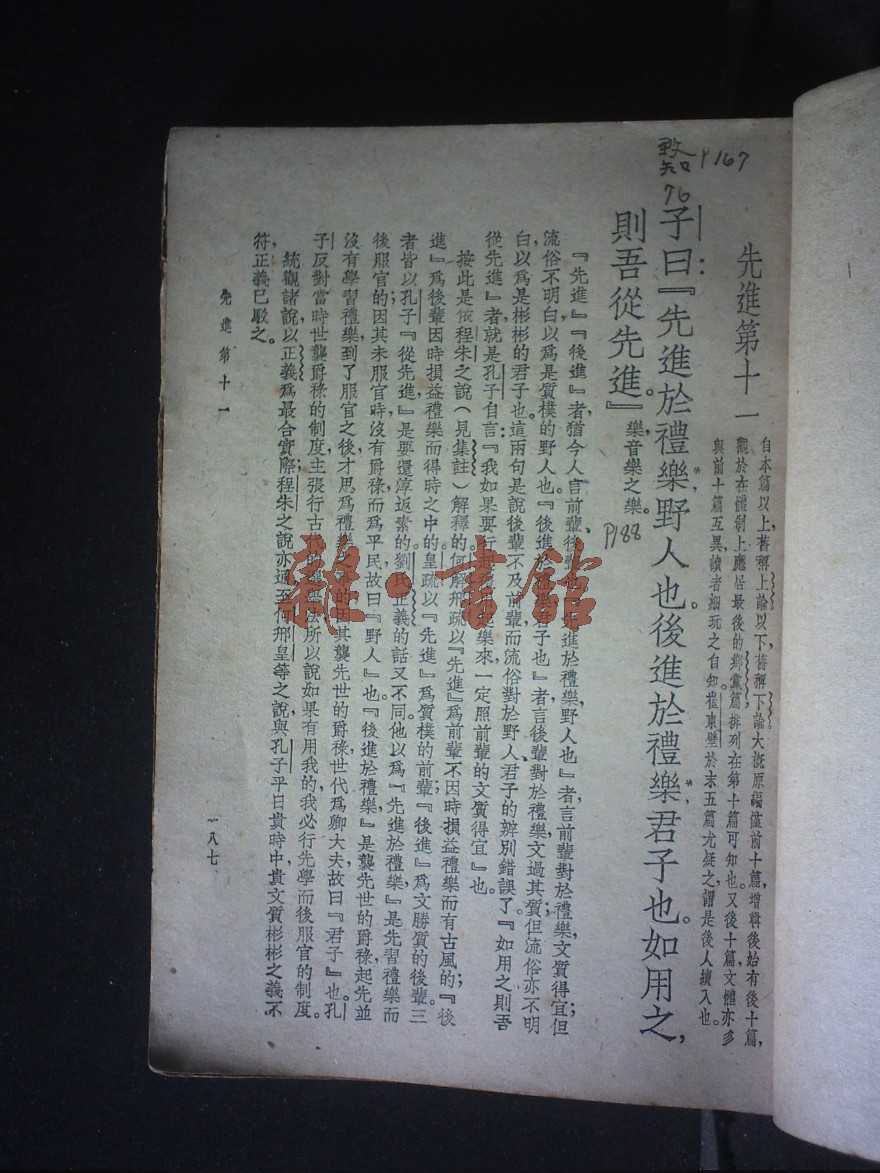 先進第十一
自本篇以上，舊稱上論；以下，舊稱下論。大概原編僅前十篇，增輯後始有後十篇，
觀於在體制上應居最後的鄉黨篇，排列在第十篇可知也。又後十篇，文體亦多
與前十篇互異，讀者細玩之自知。崔東壁於末五篇尤疑之，謂是後人續入也。
致知 P167
76
子曰：『先進於禮樂*，野人也。後進於禮樂*，君子也。如用之，
則吾從先進。』樂，音樂之樂。
P188
『先進』『後進』者，猶今人言前輩、後
先進於禮樂，野人也』者，言前輩對於禮樂，文質得宜；但
流俗不明白，以為是質樸的野人也。『後進於禮樂，君子也』者，言後輩對於禮樂，文過其質；但流俗亦不明
白，以為是彬彬的君子也。這兩句是說後輩不及前輩，而流俗對於野人、君子的辨別錯誤了。『如用之，則吾
從先進』者，就是孔子自言：『我如果要行
起樂來，一定照前輩的文質得宜』也。
按此是依程朱之說（見集註）解釋的。何解邢疏以『先進』為前輩不因時損益禮樂而有古風的；『後
進』為後輩因時損益禮樂而得時之中的。皇疏以『先進』為質樸的前輩；『後進』為文勝質的後輩。三
者皆以孔子『從先進』是要還淳返素的。劉氏正義的話又不同，他以為『先進於禮樂』是先習禮樂而
後服官的；因其未服官時，沒有爵祿而為平民，故曰『野人』也。『後進於禮樂』是襲先世的爵祿，起先並
沒有學習禮樂，到了服官之後，才思為禮樂之事的；因其襲先世的爵祿，世代為卿大夫，故曰『君子』也。孔
子反對當時世襲爵祿的制度，主張行古代的選舉法，所以說如果有用我的，我必行先學而後服官的制度。
統觀諸說，以正義為最合實際；程朱之說亦通；至何邢皇等之說，與孔子平日貴時中，貴文質彬彬之義不
符，正義已駁之。
先進第十一
一八七
雜·書館